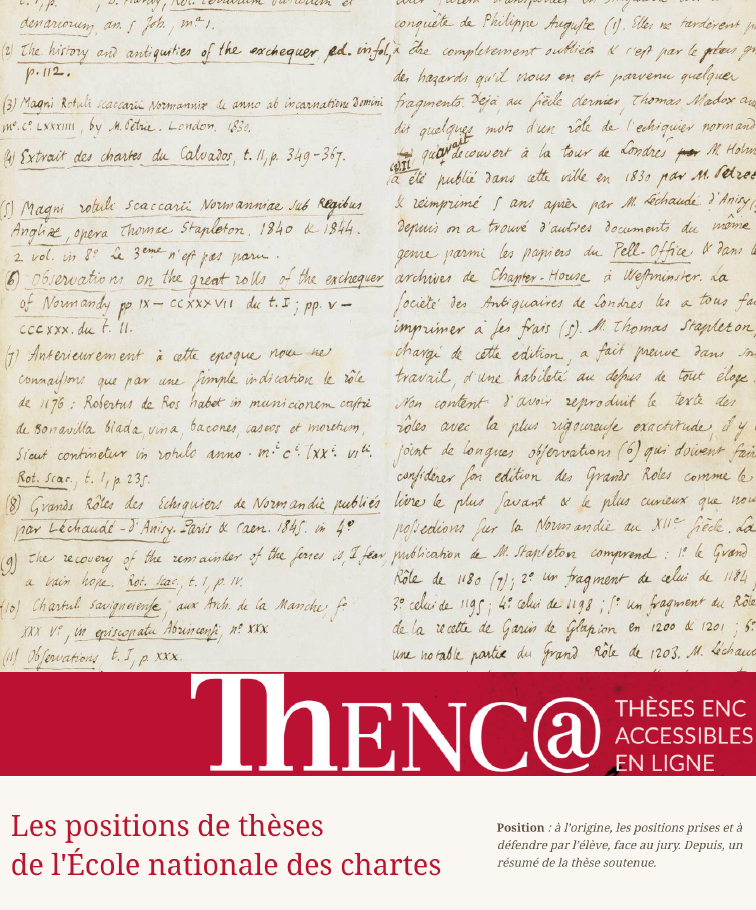 denariorum, an. 5 Joh., m.a 1.
(2) The history and antiquities of the exchequer, ed. in fol.,
p. 112.
(3) Magni Rotuli scaccarii Normanniæ de anno ab incarnatione Domini
mo. Co. LXXXIIII, by M. Petrie. London. 1830.
(4) Extrait des chartes du Calvados, t. II, p. 349-367.
(5) Magni rotuli scaccarii Normanniae sub Regibus
Angliæ, opera Thomae Stapleton. 1840 & 1844.
2 vol. in 8o. Le 3eme n'est pas paru.
(6) Observations on the great rolls of the exchequer
of Normandy pp. IX – CCXXXVII du t. I ; pp. V –
CCCXXX. du t. II.
(7) Anterieurement à cette epoque nous ne
connaissons que par une simple indication le rôle
de 1176 : Robertus de Ros habet in municionem castri
de Bonavilla blada, vina, bacones, caseos et moretum,
sicut continetur in rotulo anno . m.o c.o lxxo. vito.
Rot. Scac., t. I, p. 235.
(8) Grands Rôles des Echiquiers de Normandie publiés
par Léchaudé-d'Anisy. Paris & Caen. 1845. in 4o
(9) The recovery of the remainder of the series is, I fear,
a vain hope. Rot. Scac., t. I, p. IV.
(10) Chartul savigneiense, aux Arch. de la Manche, fo
XXX vo, in episcopatu Abrincensi, no XXX
(11) Observations, t. I, p. XXX.
conquête de Philippe Auguste (1). Elles ne tarderent
à être completement oubliées & c'est par le plus
des hazards qu'il nous en est parvenu quelques
fragments. Déjà, au siècle dernier, Thomas Madox
dit quelques mots d'un rôle de l'echiquier normand
qu'avait decouvert à la tour de Londres M.
a été publié dans cette ville en 1830 par M. Petrie
& reimprimé 5 ans après par M. Léchaudé d'Anisy
depuis on a trouvé d'autres documents du même
genre parmi les papiers du Pell-Office & dans
archives de Chapter-House à Westminster. La
Société des Antiquaires de Londres les a tous
imprimer à ses frais (5). M. Thomas Stapleton,
chargé de cette edition, a fait preuve dans
travail, d'une habileté au dessus de tout éloge.
Non content d'avoir reproduit le texte des
rôles avec la plus rigoureuse exactitude, il y
joint de longues observations (6) qui doivent
considérer son edition des Grands Roles comme le
livre le plus savant & le plus curieux que
possedions sur la Normandie au XIIe siècle. La
publication de M. Stapleton comprend : 1o le Grand
Rôle de 1180 (7); 2o un fragment de celui de 1184
3o celui de 1195 ; 4o celui de 1198 ; 5o un fragment du Rôle
de la recette de Garin de Glapion en 1200 & 1201 ;
une notable partie du Grand Rôle de 1203. M.
ThENC@
THÈSES ENC
ACCESSIBLES
EN LIGNE
Les positions de thèses
de l'École nationale des chartes
Position : à l'origine, les positions prises et à
défendre par l'élève, face au jury. Depuis, un
résumé de la thèse soutenue.